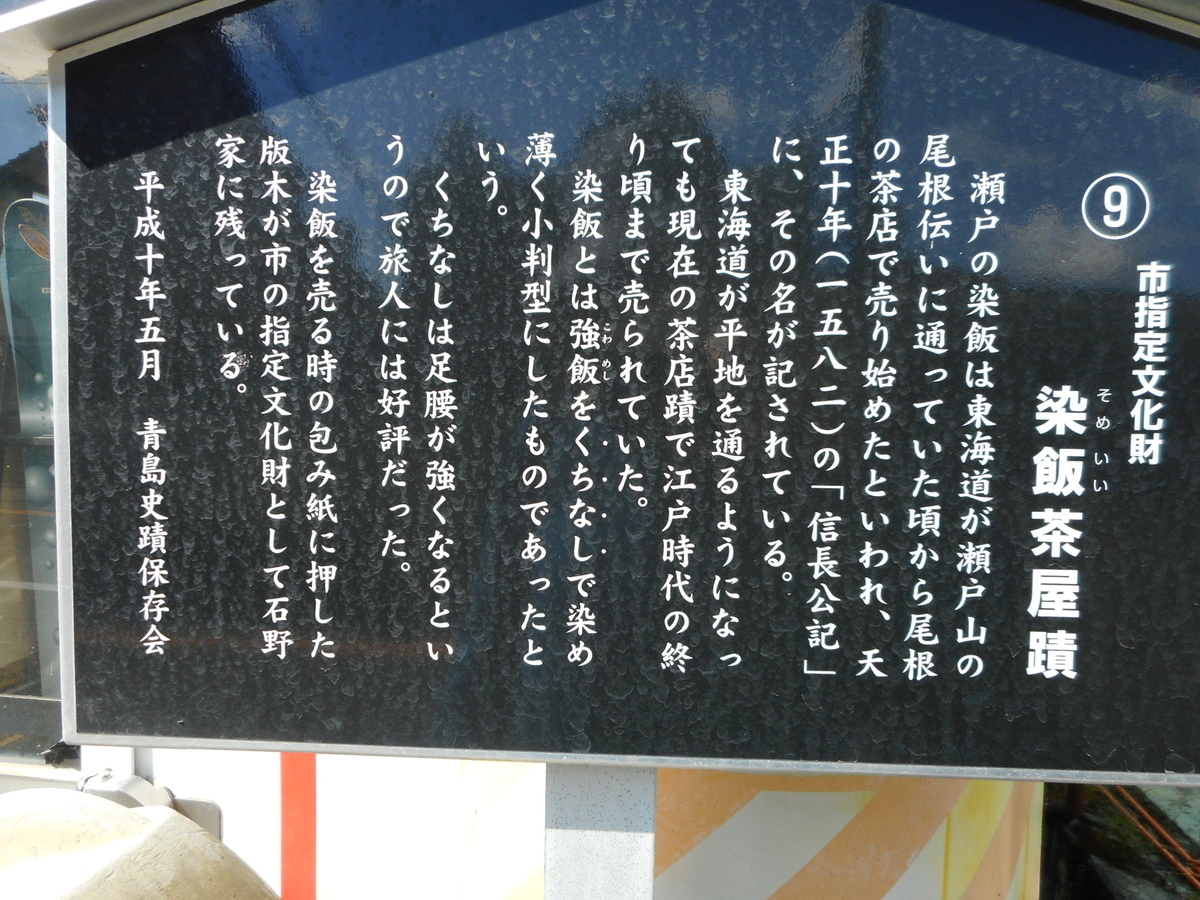 ⑨
市指定文化財
染飯茶屋蹟
そめいい
瀬戸の染飯は東海道が瀬戸山の
尾根伝いに通っていた頃から尾根
の茶店で売り始めたといわれ、天
正十年(一五八二)の「信長公記」
に、その名が記されている。
東海道が平地を通るようになっ
ても現在の茶店蹟で江戸時代の終
り頃まで売られていた。
染飯とは強飯をくちなしで染め
こわめし
薄く小判型にしたものであったと
いう。
くちなしは足腰が強くなるとい
うので旅人には好評だった。
染飯を売る時の包み紙に押した
版木が市の指定文化財として石野
家に残っている。
平成十年五月 青島史蹟保存会